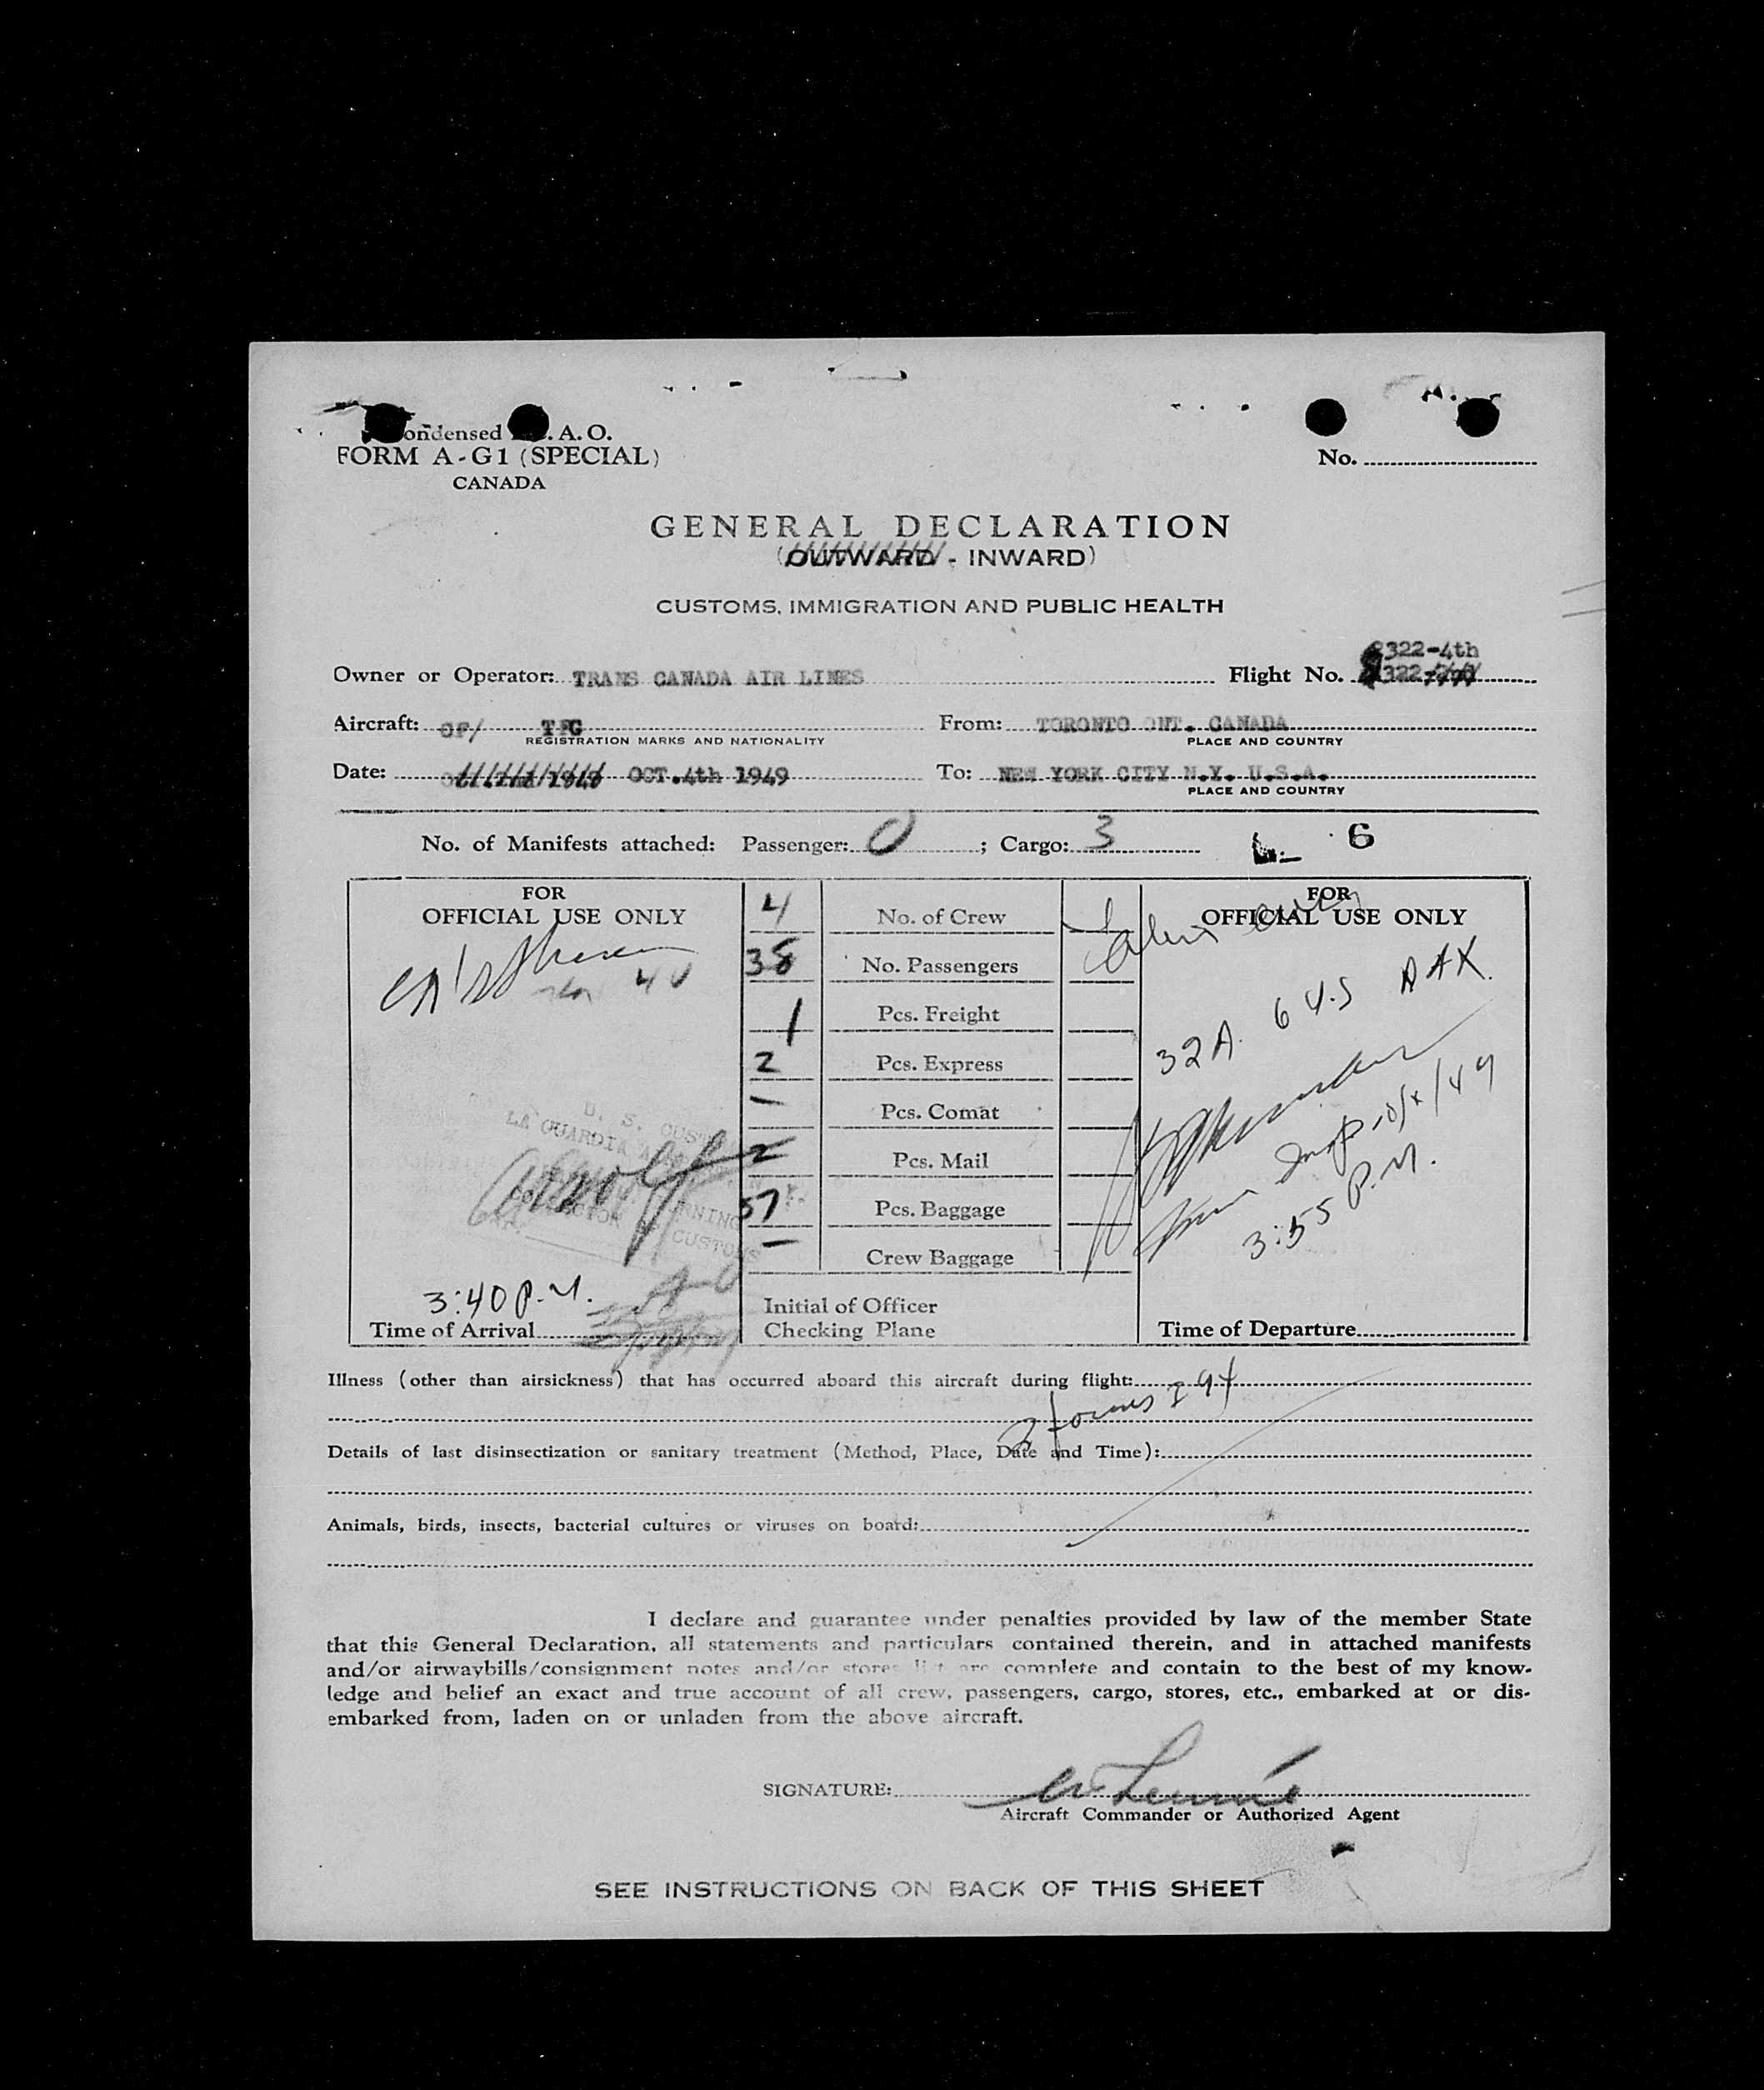 ondensed . A. O.
FORM A-G1 (SPECIAL)
CANADA
No.
GENERAL DECLARATION
(OUTWARD - INWARD)
CUSTOMS, IMMIGRATION AND PUBLIC HEALTH
322-4th
Owner or Operator: TRANS CANADA AIR LINES Flight No. 322
Aircraft: CF/ TFG From: TORONTO ONT. CANADA
REGISTRATION MARKS AND NATIONALITY PLACE AND COUNTRY
Date: OCT.4th 1949 To: NEW YORK CITY N.Y. U.S.A.
PLACE AND COUNTRY
No. of Manifests attached: Passenger: 0 ; Cargo: 3 6
FOR
OFFICIAL USE ONLY
4 No. of Crew
38 No. Passengers
1 Pcs. Freight
2 Pcs. Express
— Pcs. Comat
2 Pcs. Mail
57 Pcs. Baggage
— Crew Baggage
Initial of Officer
Checking Plane
U. S. CUSTOMS
LA GUARDIA
CUSTOMS
3:40 P.M.
Time of Arrival
FOR
OFFICIAL USE ONLY
32A. 6 U.S
3:55 P.M.
Time of Departure
Illness (other than airsickness) that has occurred aboard this aircraft during flight:
2 forms I 94
Details of last disinsectization or sanitary treatment (Method, Place, Date and Time):
Animals, birds, insects, bacterial cultures or viruses on board:
I declare and guarantee under penalties provided by law of the member State
that this General Declaration, all statements and particulars contained therein, and in attached manifests
and/or airwaybills/consignment notes and/or stores list are complete and contain to the best of my know-
ledge and belief an exact and true account of all crew, passengers, cargo, stores, etc., embarked at or dis-
embarked from, laden on or unladen from the above aircraft.
SIGNATURE:
Aircraft Commander or Authorized Agent
SEE INSTRUCTIONS ON BACK OF THIS SHEET